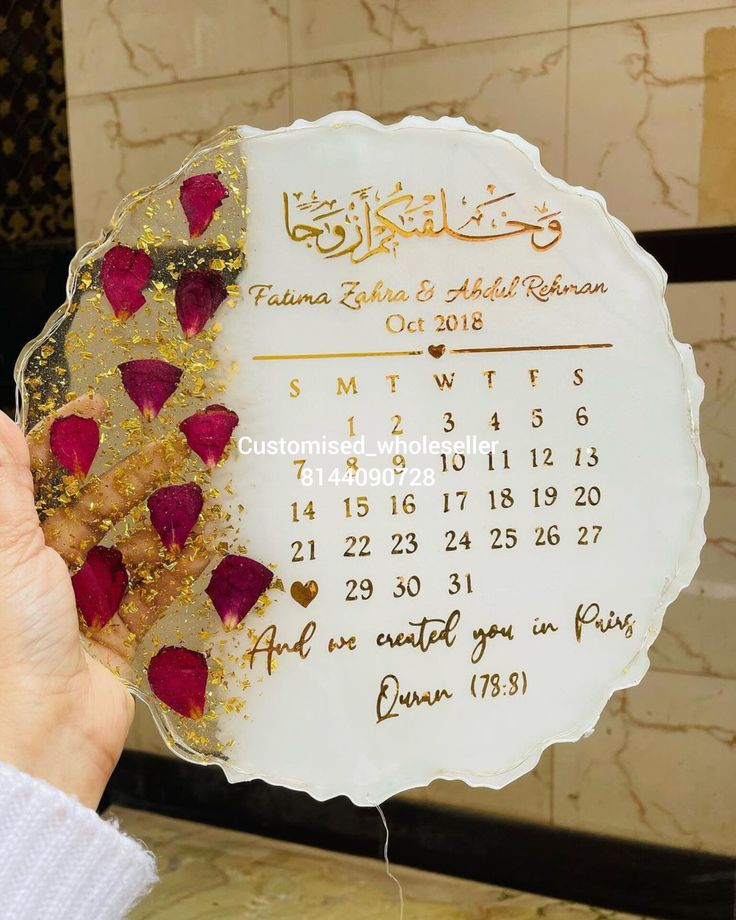 وخلقنكم أزوجا
Fatima Zahra & Abdul Rehman
Oct 2018
S M T W T F S
1 2 3 4 5 6
7 8 9 10 11 12 13
Customised_wholeseller
8144090728
14 15 16 17 18 19 20
21 22 23 24 25 26 27
29 30 31
And we created you in Pairs
Quran (78:8)